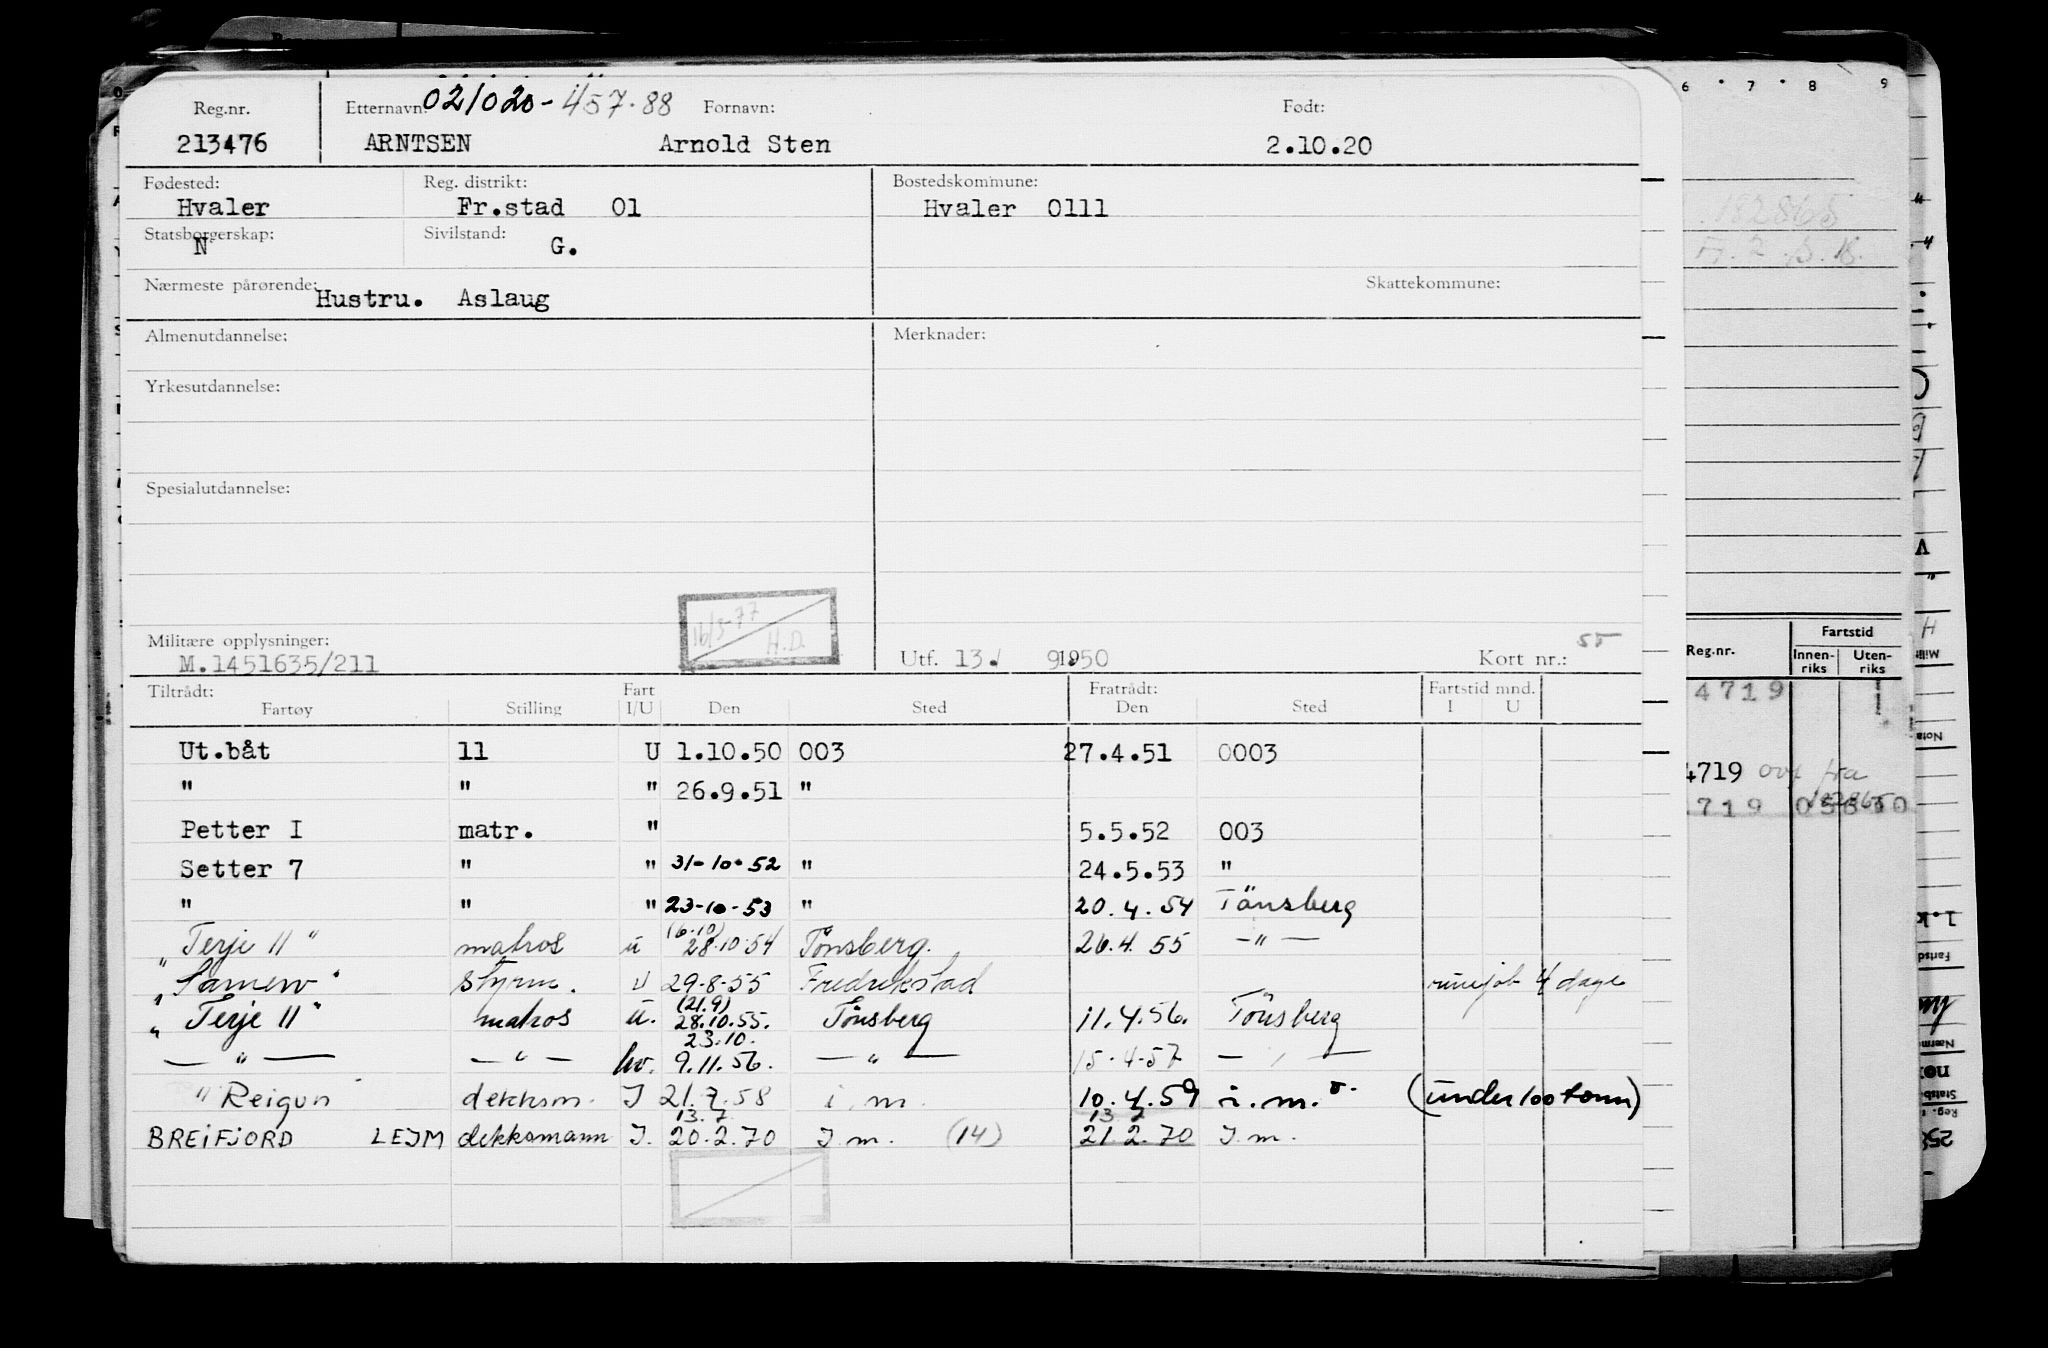 Reg.nr. Etternavn: 02/020-457.88 Fornavn: Født:
213476 ARNTSEN Arnold Sten 2.10.20
Fødested: Reg. distrikt: Bostedskommune:
Hvaler Fr.stad 01 Hvaler 0111
Statsborgerskap: Sivilstand:
N G.
Nærmeste pårørende: Skattekommune:
Hustru. Aslaug
Almenutdannelse: Merknader:
Yrkesutdannelse:
Spesialutdannelse:
16/3-77 H.D.
Militære opplysninger: 55
M.1451635/211 Utf. 13. 9.1950 Kort nr.:
Tiltrådt: Fart Fratrådt: Fartstid mnd.
Fartøy Stilling I/U Den Sted Den Sted I U
Ut.båt 11 U 1.10.50 003 27.4.51 0003
" " " 26.9.51 "
Petter I matr. " 5.5.52 003
Setter 7 " " 31-10-52 " 24.5.53 "
" " " 23-10-53 " 20.4.54 Tönsberg
(6.10)
"Terje II" matros u 28.10.54 Tønsberg. 26.4.55 —"—
styrm. U 29-8-55 Fredrikstad 4 dage
(21.9)
"Terje II" matros u. 28.10.55. Tönsberg 11.4.56. Tönsberg
23.10.
—"— —"— hv. 9.11.56. —"— 15-4-57 —"—
"Reigun dekksm. I 21.7.58 i.m. 10.4.59 i.m. (under 100 tonn)
13.7 13 7
BREIFJORD LEJM dekksmann I. 20.2.70 I.m. (14) 21.2.70 I.m.
6 7 8 9
182865
Reg.nr. Fartstid
Innen-riks Uten-riks
4719
4719 ovf fra
182865
719